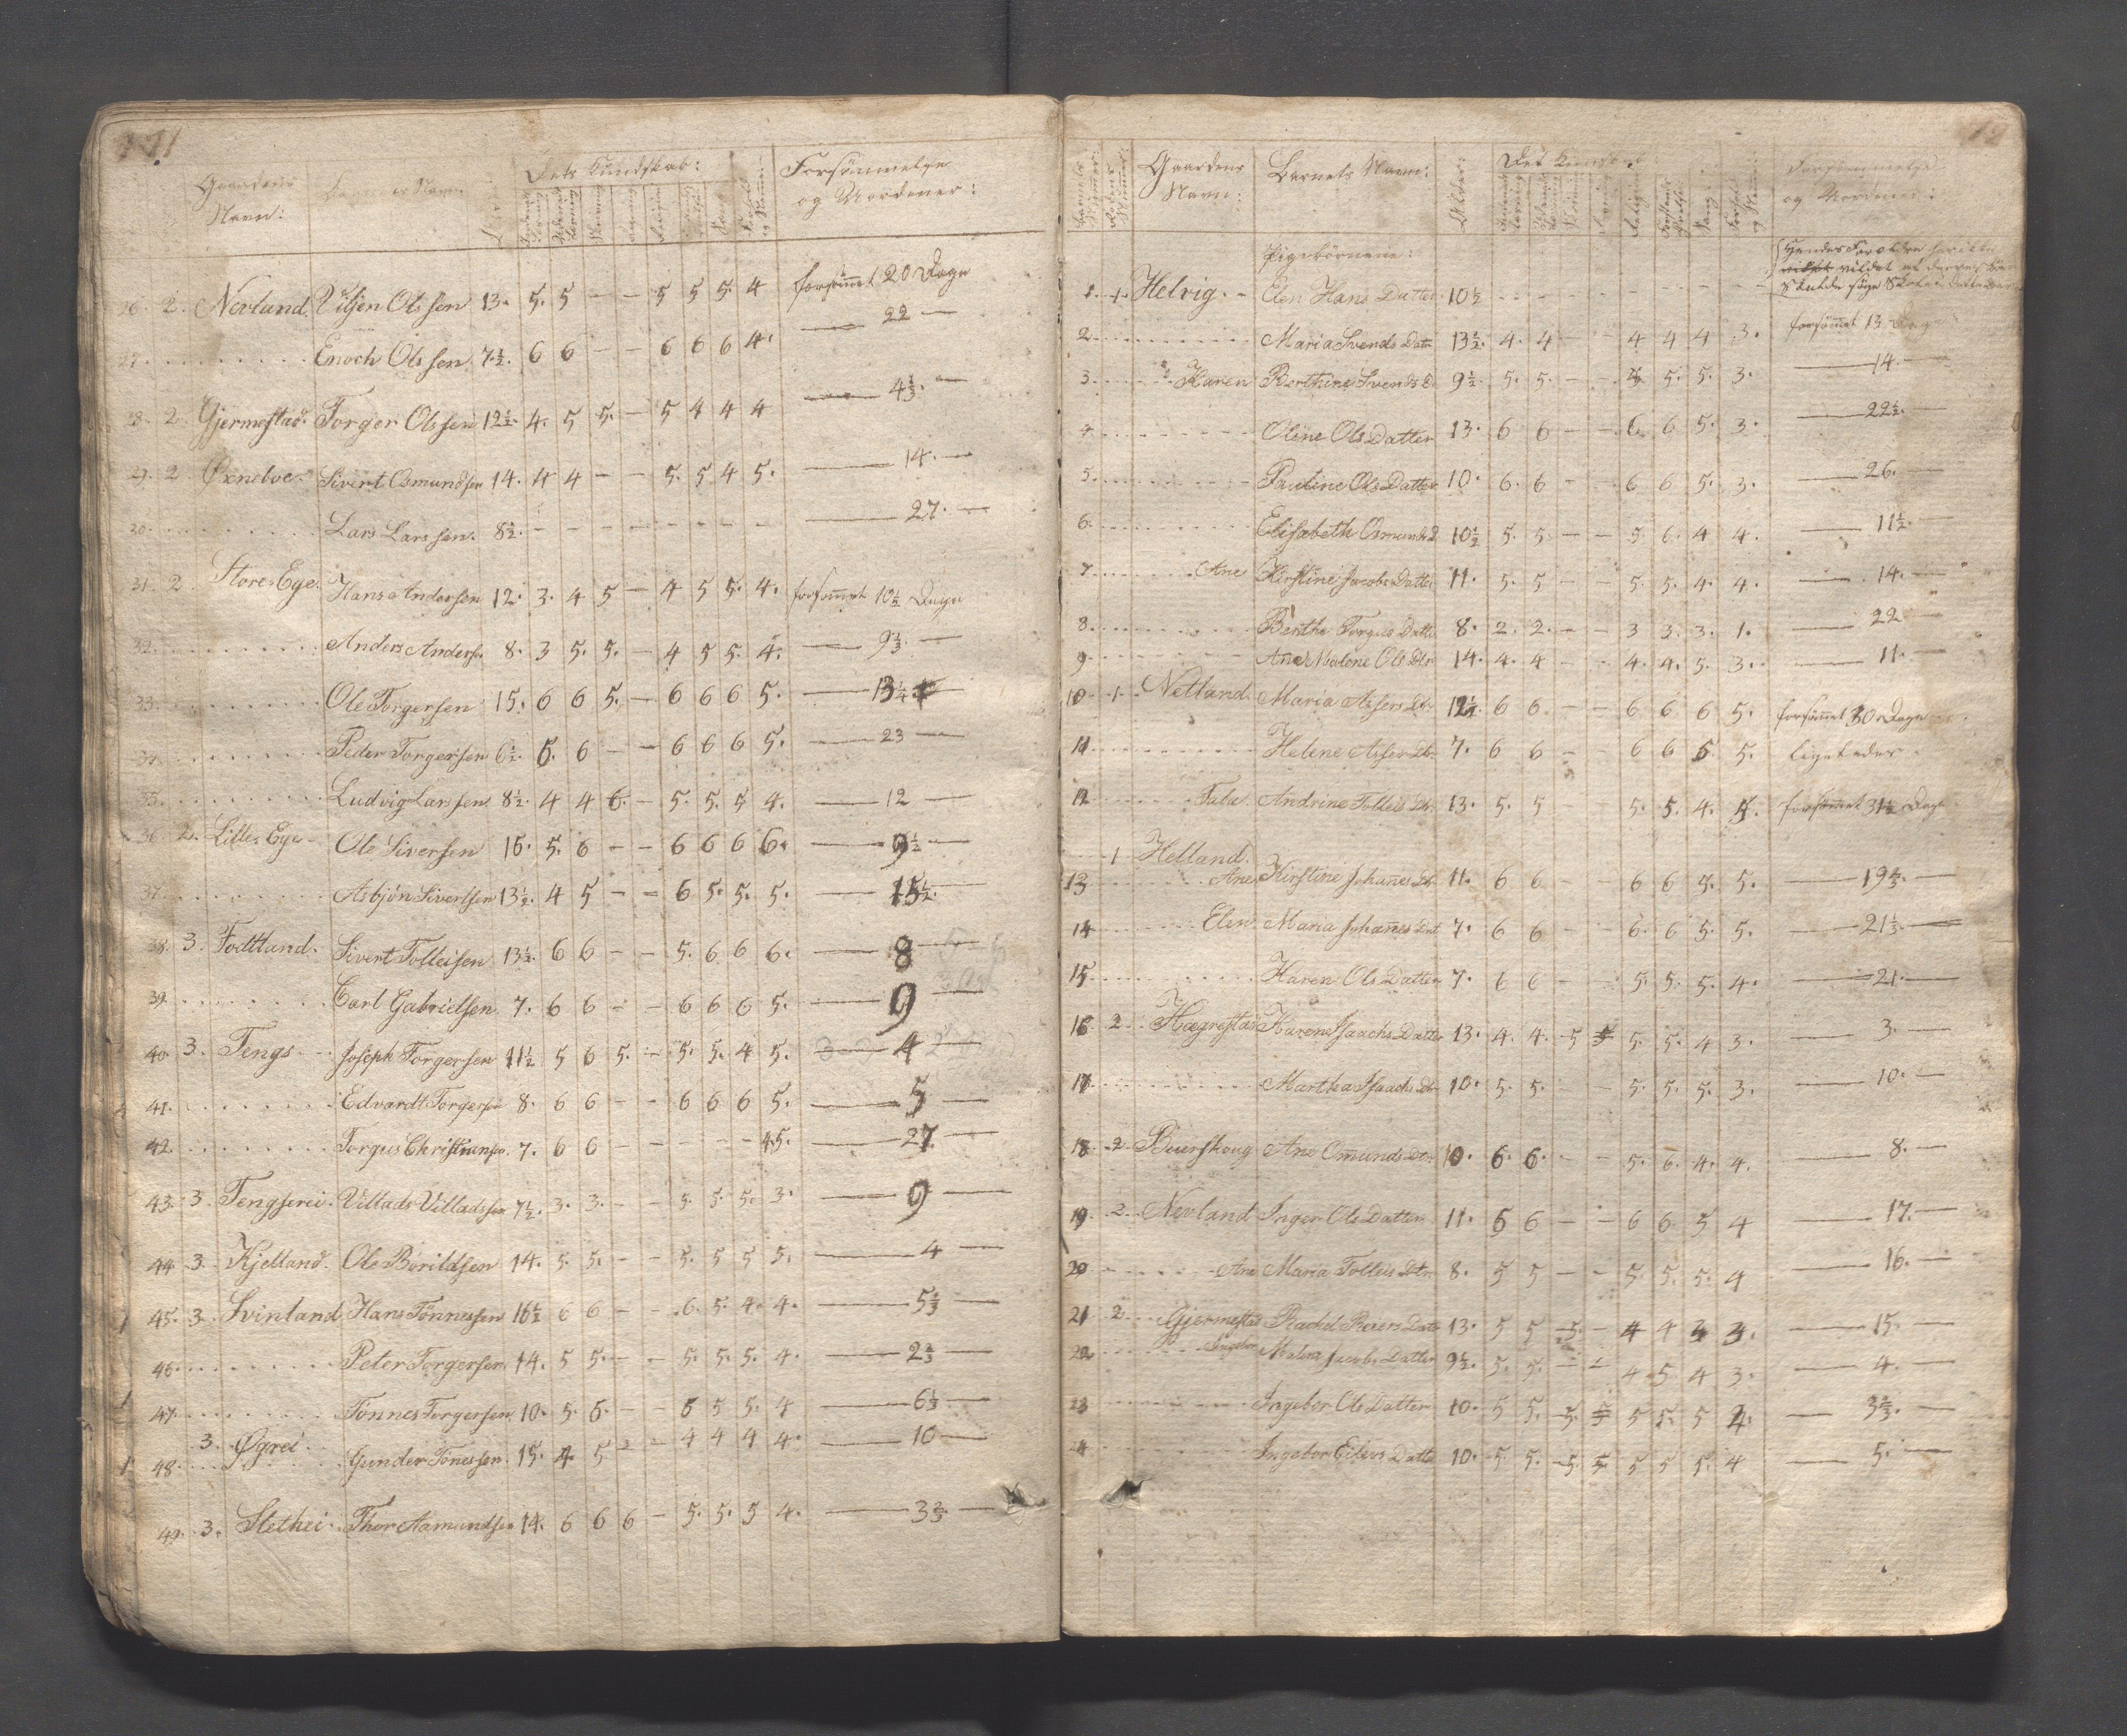 Gaardens Navn:
Dets Kundskab:
Forsömmelse og Uordener:
26. 2. Nevland Viljen Olssen 13. 5. 5 - - 5 5 5. 4 forsömmet 20 Dage
27. Enoch Olssen 7½. 6 6 - - 6 6 6 4. — 22 —
28. 2. Gjermestad. Torger Olssen 12½. 4. 5 5. - 5 4 4 4 — 4⅓. —
29. 2 Øxneboe. Sivert Osmundsen 14. 4 4 - - 5. 5 4 5. — 14. —
30. Lars Larssen. 8½. - - - - - - - - — 27. —
31. 2 Store Ege. Hans Andersen 12. 3. 4 5 - 4 5 5. 4. forsömmet 10½ Dage
32. Anders Anders. 8. 3 5. 5. - 4 5 5. 4. — 9⅓. —
33. Ole Torgersen 15. 6 6 5. - 6 6 6 5. — 13¼ —
34. Peder Torgersen 6½. 6. 6 - - 6 6 6 5. — 23 —
35. Ludvig Larssen 8½. 4 4 6. - 5. 5. 5 4. — 12 —
36. 2. Lille Ege Ole Siversen 16. 5. 6 - - 6 6 6 6. — 9½ —
37. Asbjön Sivertsen 13½. 4 5 - - 6 5. 5. 5. — 15½. —
38. 3. Fodtland. Sivert Tolleisen 13½. 6 6 - - 5. 6 6 6. — 8 —
39. Carl Gabrielsen. 7. 6 6 - - 6 6 6 5. — 9 —
40. 3. Tengs. Joseph Torgersen 11½ 5 6 5. - 5. 5. 4 5. — 4 —
41. Edvardt Torgersen 8. 6 6 - - 6 6 6 5. — 5 —
42. Torgus Christiansen. 7. 6 6 - - - - - 5. — 27. —
43. 3 Tengserei. Villads Villadsen 7½. 3. 3. - - 5. 5. 5. 3. — 9 —
44. 3. Kjelland. Ole Bårildsen 14. 5. 5. - - 5. 5 5 5. — 4 —
45. 3. Svinland Hans Tönnessen 16½ 6 6 - - 6. 5. 4. 4. — 5⅓ —
46. Peter Torgersen 14. 5 5. - - 5. 5. 5. 4. — 2⅔ —
47. Tönnes Torgersen 10. 5. 6. - - 6 5 5. 4 — 6⅓ —
48. 3. Øgrei. Gunder Tönessen. 15. 4. 5 - - 4 4 4 4. — 10 —
49. 3. Slethei. Thor Aamundsen 14. 6 6 6 - 5. 5. 5 4. — 3⅔ —
Gaardens Navn:
Barnets Navn:
Alder:
Det Kundskab
Forsömmelse og Uordener:
Pigebörnene:
1. 1. Helvig. Elen Hans Datter 10½ - - - - - - - -
2. Maria Svends Datr 13½. 4. 4 - - 4 4 4 3. forsömmet 13 Dage
3. Karen Berthine Svends D. 9½. 5. 5. - - 5. 5. 3. — 14. —
4. Oline Ols Datter 13. 6 6 - - 6 6 5. 3. — 22½. —
5. Pauline Ols Datter 10. 6. 6 - - 6 6 5. 3. — 26. —
6. Elisabeth Osmunds D 10½ 5. 5. - - 5. 6. 4 4. — 11½. —
7. Ane Kirstine Jacobs Datter 11. 5. 5 - - 5. 5. 4. 4. — 14. —
8. Berthe Torgus Datter 8. 2. 2. - - 3 3. 3. 1. — 22 —
9 Ane Malene Ols Dtr 14. 4. 4 - - 4. 4. 5. 3. — 11. —
10. 1. Netland. Maria Assers Dtr. 12½. 6 6. - - 6 6 6 5. forsömmet 30 Dage
11. Helene Assers Dtr. 7. 6 6 - - 6 6 6 5. ligeledes
12. Tabe. Andrine Tolleis Dtr. 13. 5. 5 5. 5. 4. 5. forsömmet 31½ Dage
1 Helland.
13 Ane Kirstine Johanes Dtr 11. 6 6 - - 6 6 5. 5. — 19⅔. —
14 Elen Maria Johanes Dat 7. 6 6 - - 6. 6 5. 5. — 21⅓. —
15. Karen Ols Datter 7. 6 6 - - 5. 5. 5. 4. — 21. —
16. 2. Hægrestad Karen Isaachs Datter 13. 4. 4. 5 5. 5. 4 3. — 3. —
17. Martha Isaachs Dtr 10. 5. 5. - - 5. 5. 5. 3. — 10. —
18. 2. Beierskoug Ane Omunds Dtr. 10. 6. 6. - - 5. 6. 4. 4. — 8. —
19. 2. Nevland Inger Ols Datter 11. 6 6 - - 6 6 5 4 — 17. —
20 Ane Maria Tolleis Dtr. 8. 5 5 - - 5. 5. 5. 4 — 16. —
21 2. Gjermestad Rachel Reiers Datr 13. 5 5 5. - 4 4 3 3. — 15. —
22. Ingebor Malena Jacobs Datter 9½. 5. 5. - - 4 5 4 3. — 4. —
23 Ingebor Ols Datter 10. 5 5. 5. 5 5 5. 5 4. — 3⅔. —
24 Ingebor Eilevs Datter 10. 5. 5. 5. 5. 5 5 5. 4 — 5. —